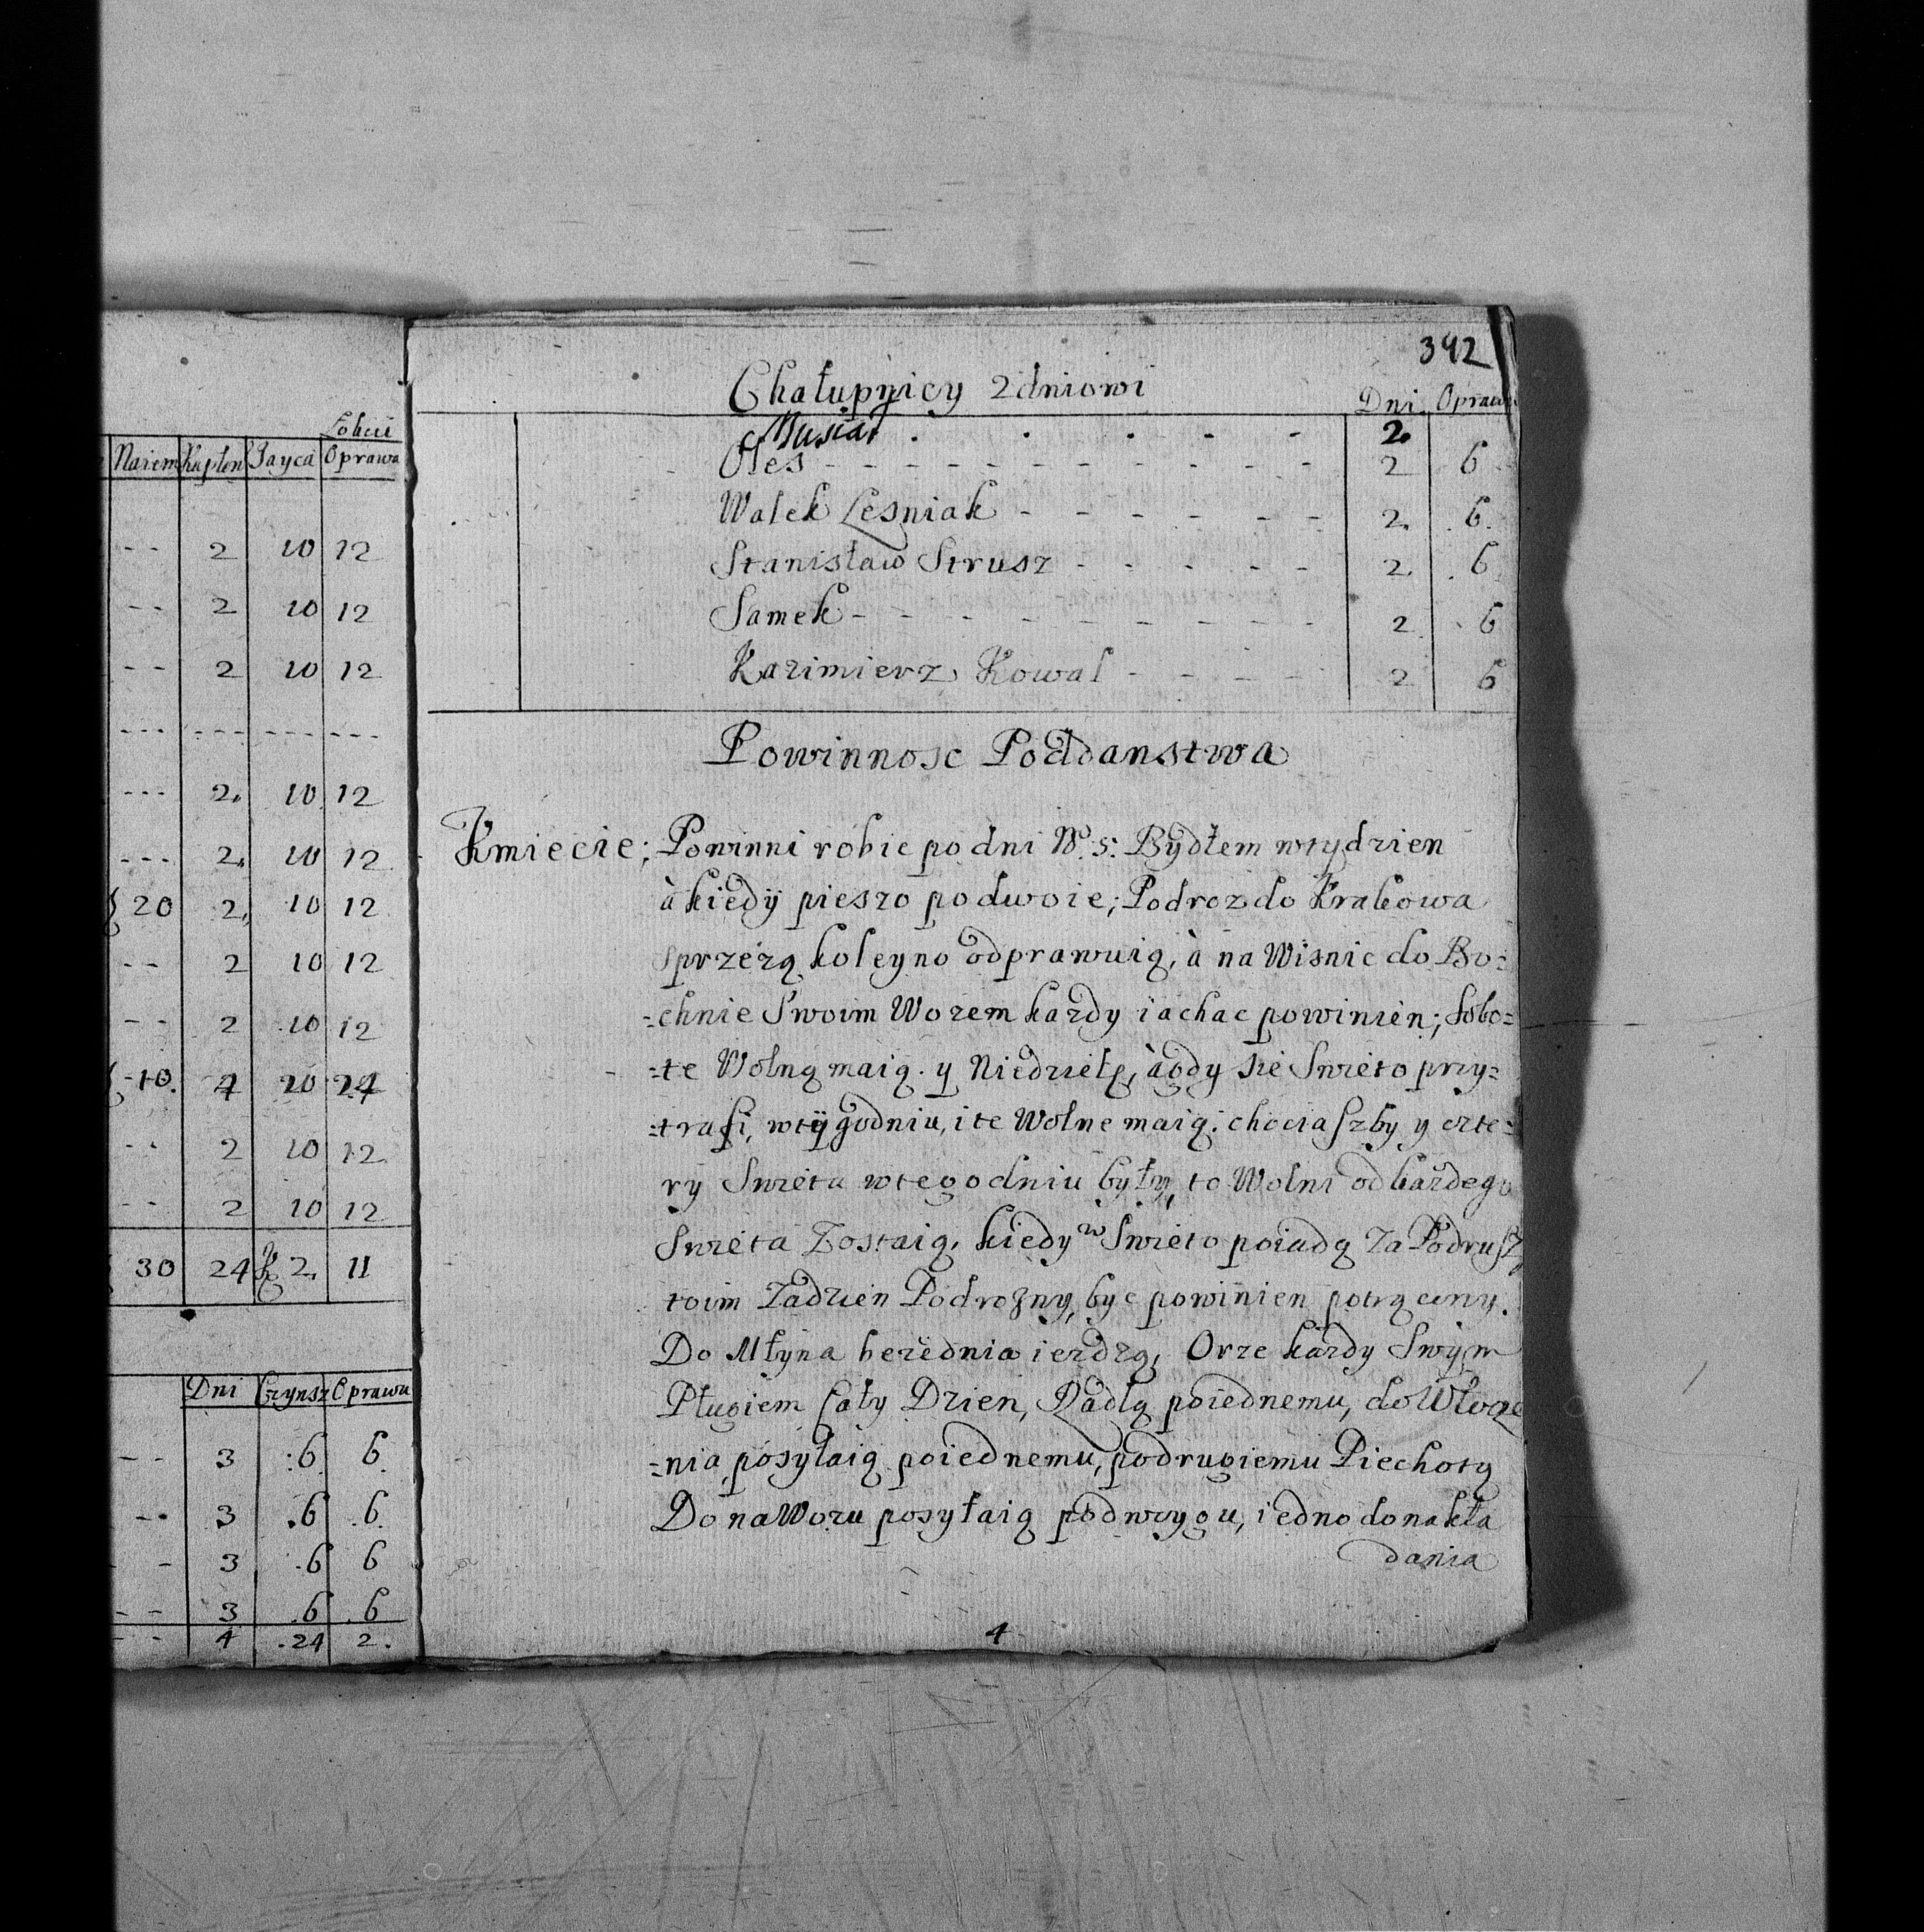 Łokcii
Naiem Kapłon Jayca Oprawa
-- 2 10 12
-- 2 10 12
-- 2 10 12
--- --- --- ---
--- 2. 10 12
--- 2. 10 12
20 2. 10 12
-- 2 10 12
-- 2 10 12
10. 4 20 24
-- 2 10 12
-- 2 10 12
30 24 2. 11
Dni Czynsz Oprawa
-- 3 6 6
-- 3 6 6
- 3 6 6
-- 3 6 6
-- 4 24 2.
392
Chałupnicy 2dniowi Dni Opraw
Musiał 2.
Oles 2 6
Walek Lesniak 2. 6
Stanisław Strusz 2. 6
Samek 2 6
Kazimierz Kowal 2 6
Powinnosc Poddanstwa
Kmiecie; Powinni robic po dni N. 5: Bydłem wtydzien
à kiedÿ pieszo podwoie; Podroz do Krakowa
sprzezą koleyno odprawuią, à na Wisnic do Bo=
=chnie Swoim Wozem kazdy iachac powinien; Sobo=
=te Wolną maią y Niedzielę, à gdy sie Swieto przy=
=trafi, wtÿgodniu, i te Wolne maią: chociaszby y czte=
ry Swieta wtegodniu były, to Wolni od kazdego
Swieta Zostaią, kiedy w Swieto poiadą Za Podrusz
to im Zadzien Podrozny, byc powinien potrącony.
Do Młyna herednia iezdzą, Orze kazdy Swym
Pługiem Cały Dzien, Radlą poiednemu, do Włocze
=nia posyłaią poiednemu, podrugiemu Piechotą
Do naWozu posyłaią podwoygu, iedno donakła
dania
4